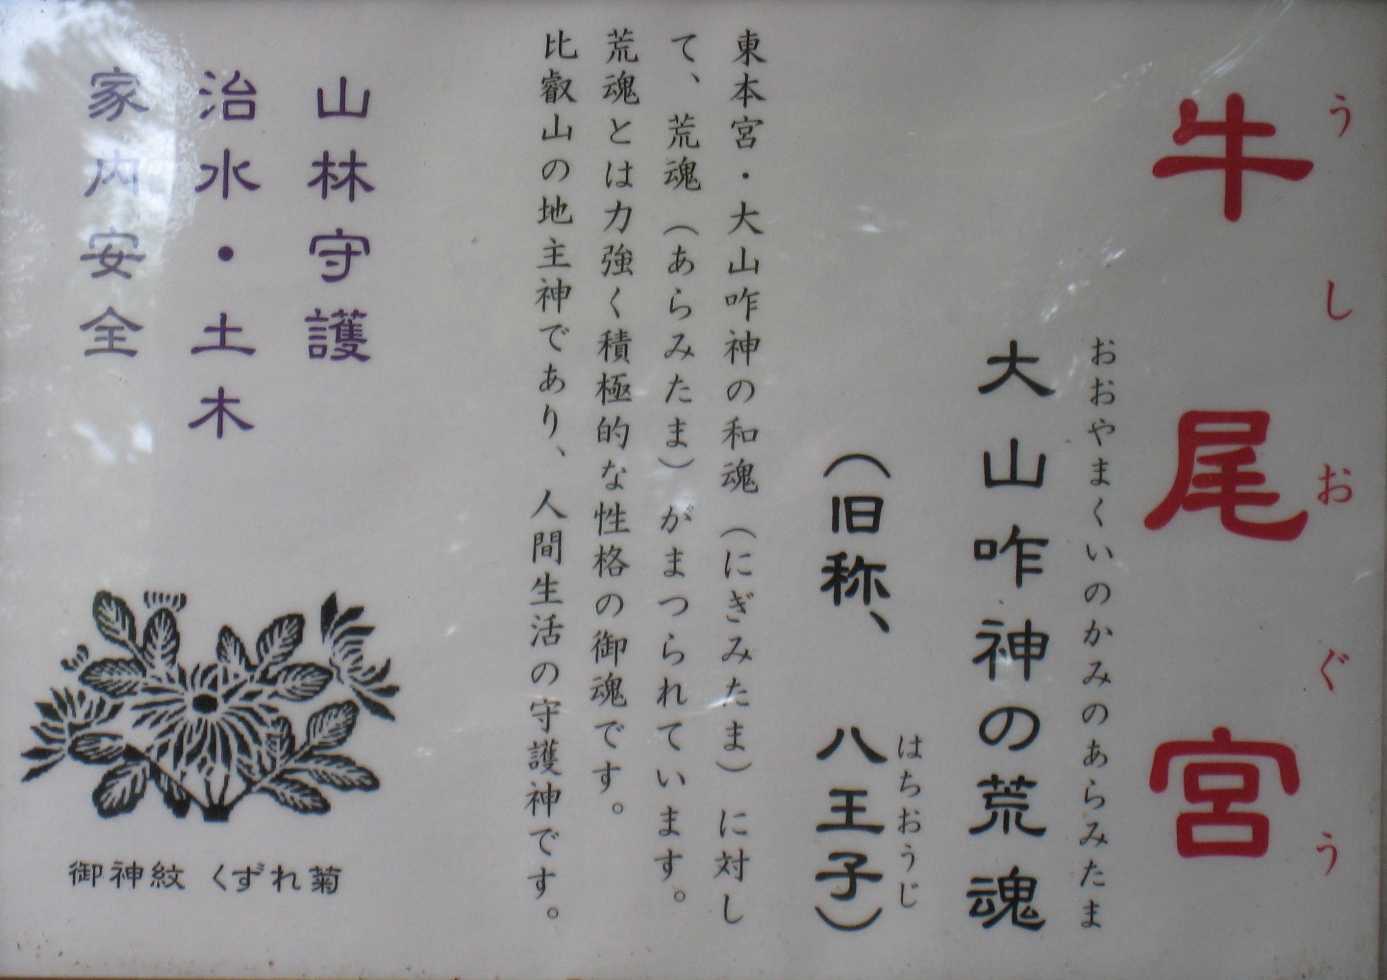 うしおぐう
牛尾宮
おおやまくいのかみのあらみたま
大山咋神の荒魂
はちおうじ
（旧称、八王子）
東本宮・大山咋神の和魂（にぎみたま）に対し
て、荒魂（あらみたま）がまつられています。
荒魂とは力強く積極的な性格の御魂です。
比叡山の地主神であり、人間生活の守護神です。
山林守護
治水・土木
家内安全
御神紋 くずれ菊